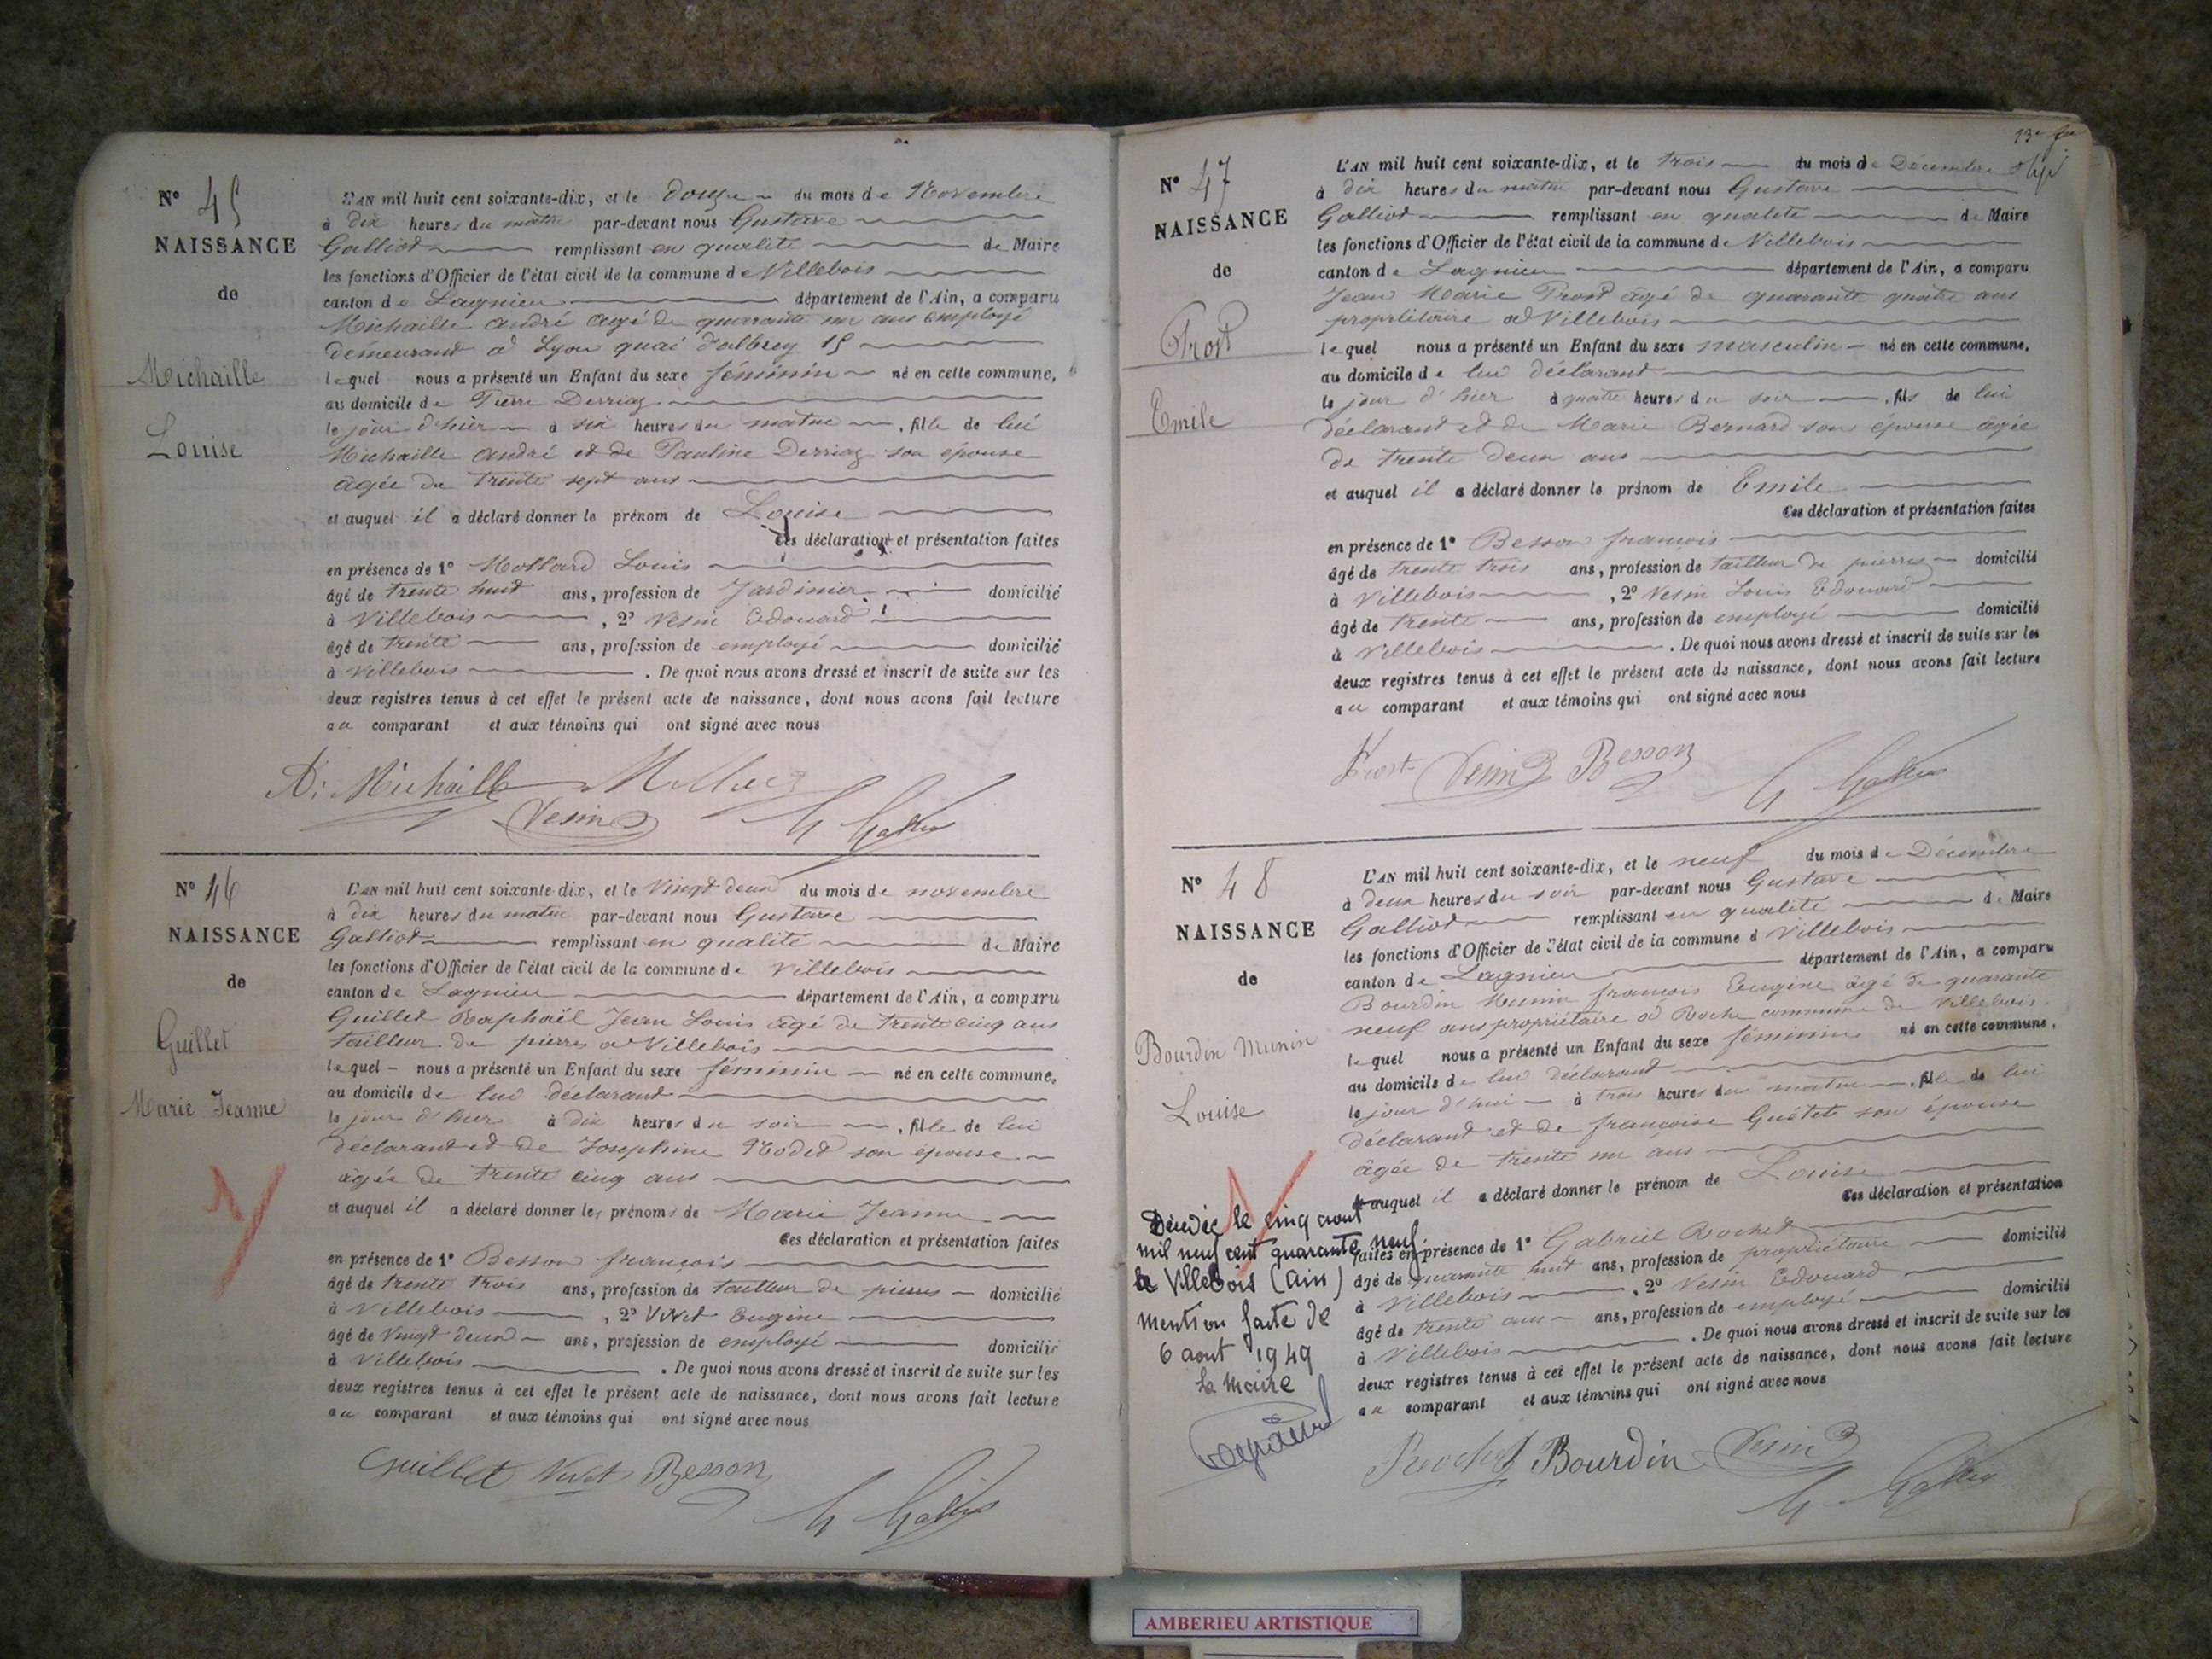 N° 45
NAISSANCE
de
Michaille
Louise
L'AN mil huit cent soixante-dix, et le douze du mois de Novembre
à dix heures du matin par-devant nous Gustave
Galliot remplissant en qualité de Maire
les fonctions d'Officier de l'état civil de la commune de Villebois
canton de Lagnieu département de l'Ain, a comparu
Michaille André âgé de quarante un ans employé
demeurant à Lyon quai 15
lequel nous a présenté un Enfant du sexe féminin né en cette commune,
au domicile de Pierre Derriaz
le jour d'hier à six heures du matin, fille de lui
Michaille André et de Pauline Derriaz son épouse
âgée de trente sept ans
et auquel il a déclaré donner le prénom de Louise
Ces déclaration et présentation faites
en présence de 1° Mollard Louis
âgé de trente huit ans, profession de Jardinier domicilié
à Villebois, 2° Vesin Edouard
âgé de trente ans, profession de employé domicilié
à Villebois. De quoi nous avons dressé et inscrit de suite sur les
deux registres tenus à cet effet le présent acte de naissance, dont nous avons fait lecture
au comparant et aux témoins qui ont signé avec nous
A. Michaille
Vesin
N° 46
NAISSANCE
de
Guillet
Marie Jeanne
L'AN mil huit cent soixante-dix, et le vingt deux du mois de novembre
à dix heures du matin par-devant nous Gustave
Galliot remplissant en qualité de Maire
les fonctions d'Officier de l'état civil de la commune de Villebois
canton de Lagnieu département de l'Ain, a comparu
Guillet Raphaël Jean Louis âgé de trente cinq ans
tailleur de pierres à Villebois
lequel nous a présenté un Enfant du sexe féminin né en cette commune,
au domicile de lui déclarant
le jour d'hier à dix heures du soir, fille de lui
déclarant et de Josephine Nodet son épouse
âgée de trente cinq ans
et auquel il a déclaré donner les prénoms de Marie Jeanne
Ces déclaration et présentation faites
en présence de 1° Besson françois
âgé de trente trois ans, profession de tailleur de pierres domicilié
à Villebois, 2° Vivet Eugène
âgé de vingt deux ans, profession de employé domicilié
à Villebois. De quoi nous avons dressé et inscrit de suite sur les
deux registres tenus à cet effet le présent acte de naissance, dont nous avons fait lecture
au comparant et aux témoins qui ont signé avec nous
Guillet Vivet Besson
13e
N° 47
NAISSANCE
de
Prost
Emile
L'AN mil huit cent soixante-dix, et le trois du mois de Décembre
à dix heures du matin par-devant nous Gustave
Galliot remplissant en qualité de Maire
les fonctions d'Officier de l'état civil de la commune de Villebois
canton de Lagnieu département de l'Ain, a comparu
Jean Marie Prost âgé de quarante quatre ans
propriétaire à Villebois
lequel nous a présenté un Enfant du sexe masculin né en cette commune,
au domicile de lui déclarant
le jour d'hier à quatre heures du soir, fils de lui
déclarant et de Marie Bernard son épouse âgée
de trente deux ans
et auquel il a déclaré donner le prénom de Emile
Ces déclaration et présentation faites
en présence de 1° Besson françois
âgé de trente trois ans, profession de tailleur de pierres domicilié
à Villebois, 2° Vesin Louis Edouard
âgé de trente ans, profession de employé domicilié
à Villebois. De quoi nous avons dressé et inscrit de suite sur les
deux registres tenus à cet effet le présent acte de naissance, dont nous avons fait lecture
au comparant et aux témoins qui ont signé avec nous
Prost Vesin Besson
N° 48
NAISSANCE
de
Bourdin Munin
Louise
L'AN mil huit cent soixante-dix, et le neuf du mois de Décembre
à deux heures du soir par-devant nous Gustave
Galliot remplissant en qualité de Maire
les fonctions d'Officier de l'état civil de la commune d Villebois
canton de Lagnieu département de l'Ain, a comparu
Bourdin Munin françois Eugène âgé de quarante
neuf ans propriétaire à Roche commune de Villebois
lequel nous a présenté un Enfant du sexe féminin né en cette commune,
au domicile de lui déclarant
le jour d'hui à trois heures du matin, fille de lui
déclarant et de françoise Guétet son épouse
âgée de trente un ans
et auquel il a déclaré donner le prénom de Louise
Ces déclaration et présentation
faites en présence de 1° Gabriel Rochet
âgé de quarante huit ans, profession de propriétaire domicilié
à Villebois, 2° Vesin Edouard
âgé de trente ans, profession de employé domicilié
à Villebois. De quoi nous avons dressé et inscrit de suite sur les
deux registres tenus à cet effet le présent acte de naissance, dont nous avons fait lecture
au comparant et aux témoins qui ont signé avec nous
Rochet Bourdin Vesin
Décédée le cinq aout
mil neuf cent quarante neuf
à Villebois (Ain)
Mention faite le
6 aout 1949
Le Maire
AMBERIEU ARTISTIQUE